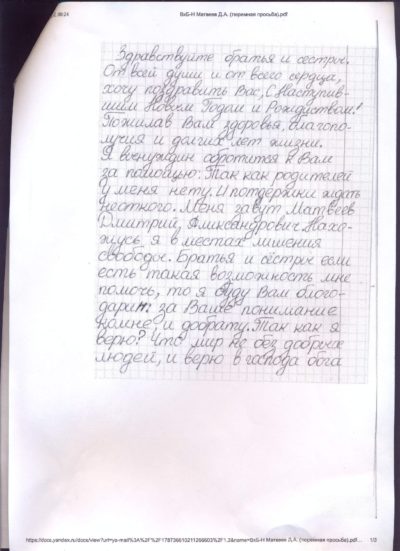 ВхБ-Н Матвеев Д.А. (тюремная просьба).pdf
Здравствуйте братья и сестры.
От всей души и от всего сердца,
хочу поздравить Вас, С Наступив-
шим Новым Годом и Рождеством!
Пожилав Вам здоровья, благопо-
лучия и долгих лет жизни.
Я вынужден обротится к Вам
за помощью. Так как родителей
у меня нету. И потдержки ждать
неоткого. Меня завут Матвеев
Дмитрий, Аликсандрович. Нахо-
жусь, я в местах лишения
свободы. Братья и сёстры если
есть такая возможность мне
помочь, то я буду Вам благо-
дарит за Ваше понимание
комне, и доброту. Так как я
верю? Что мир не без добрых
людей, и верю в господа бога
https://docs.yandex.ru/docs/view?url=ya-mail%3A%2F%2F178736610211266603%2F1.3&name=ВхБ-Н Матвеев Д.А. (тюремная просьба).pdf... 1/3